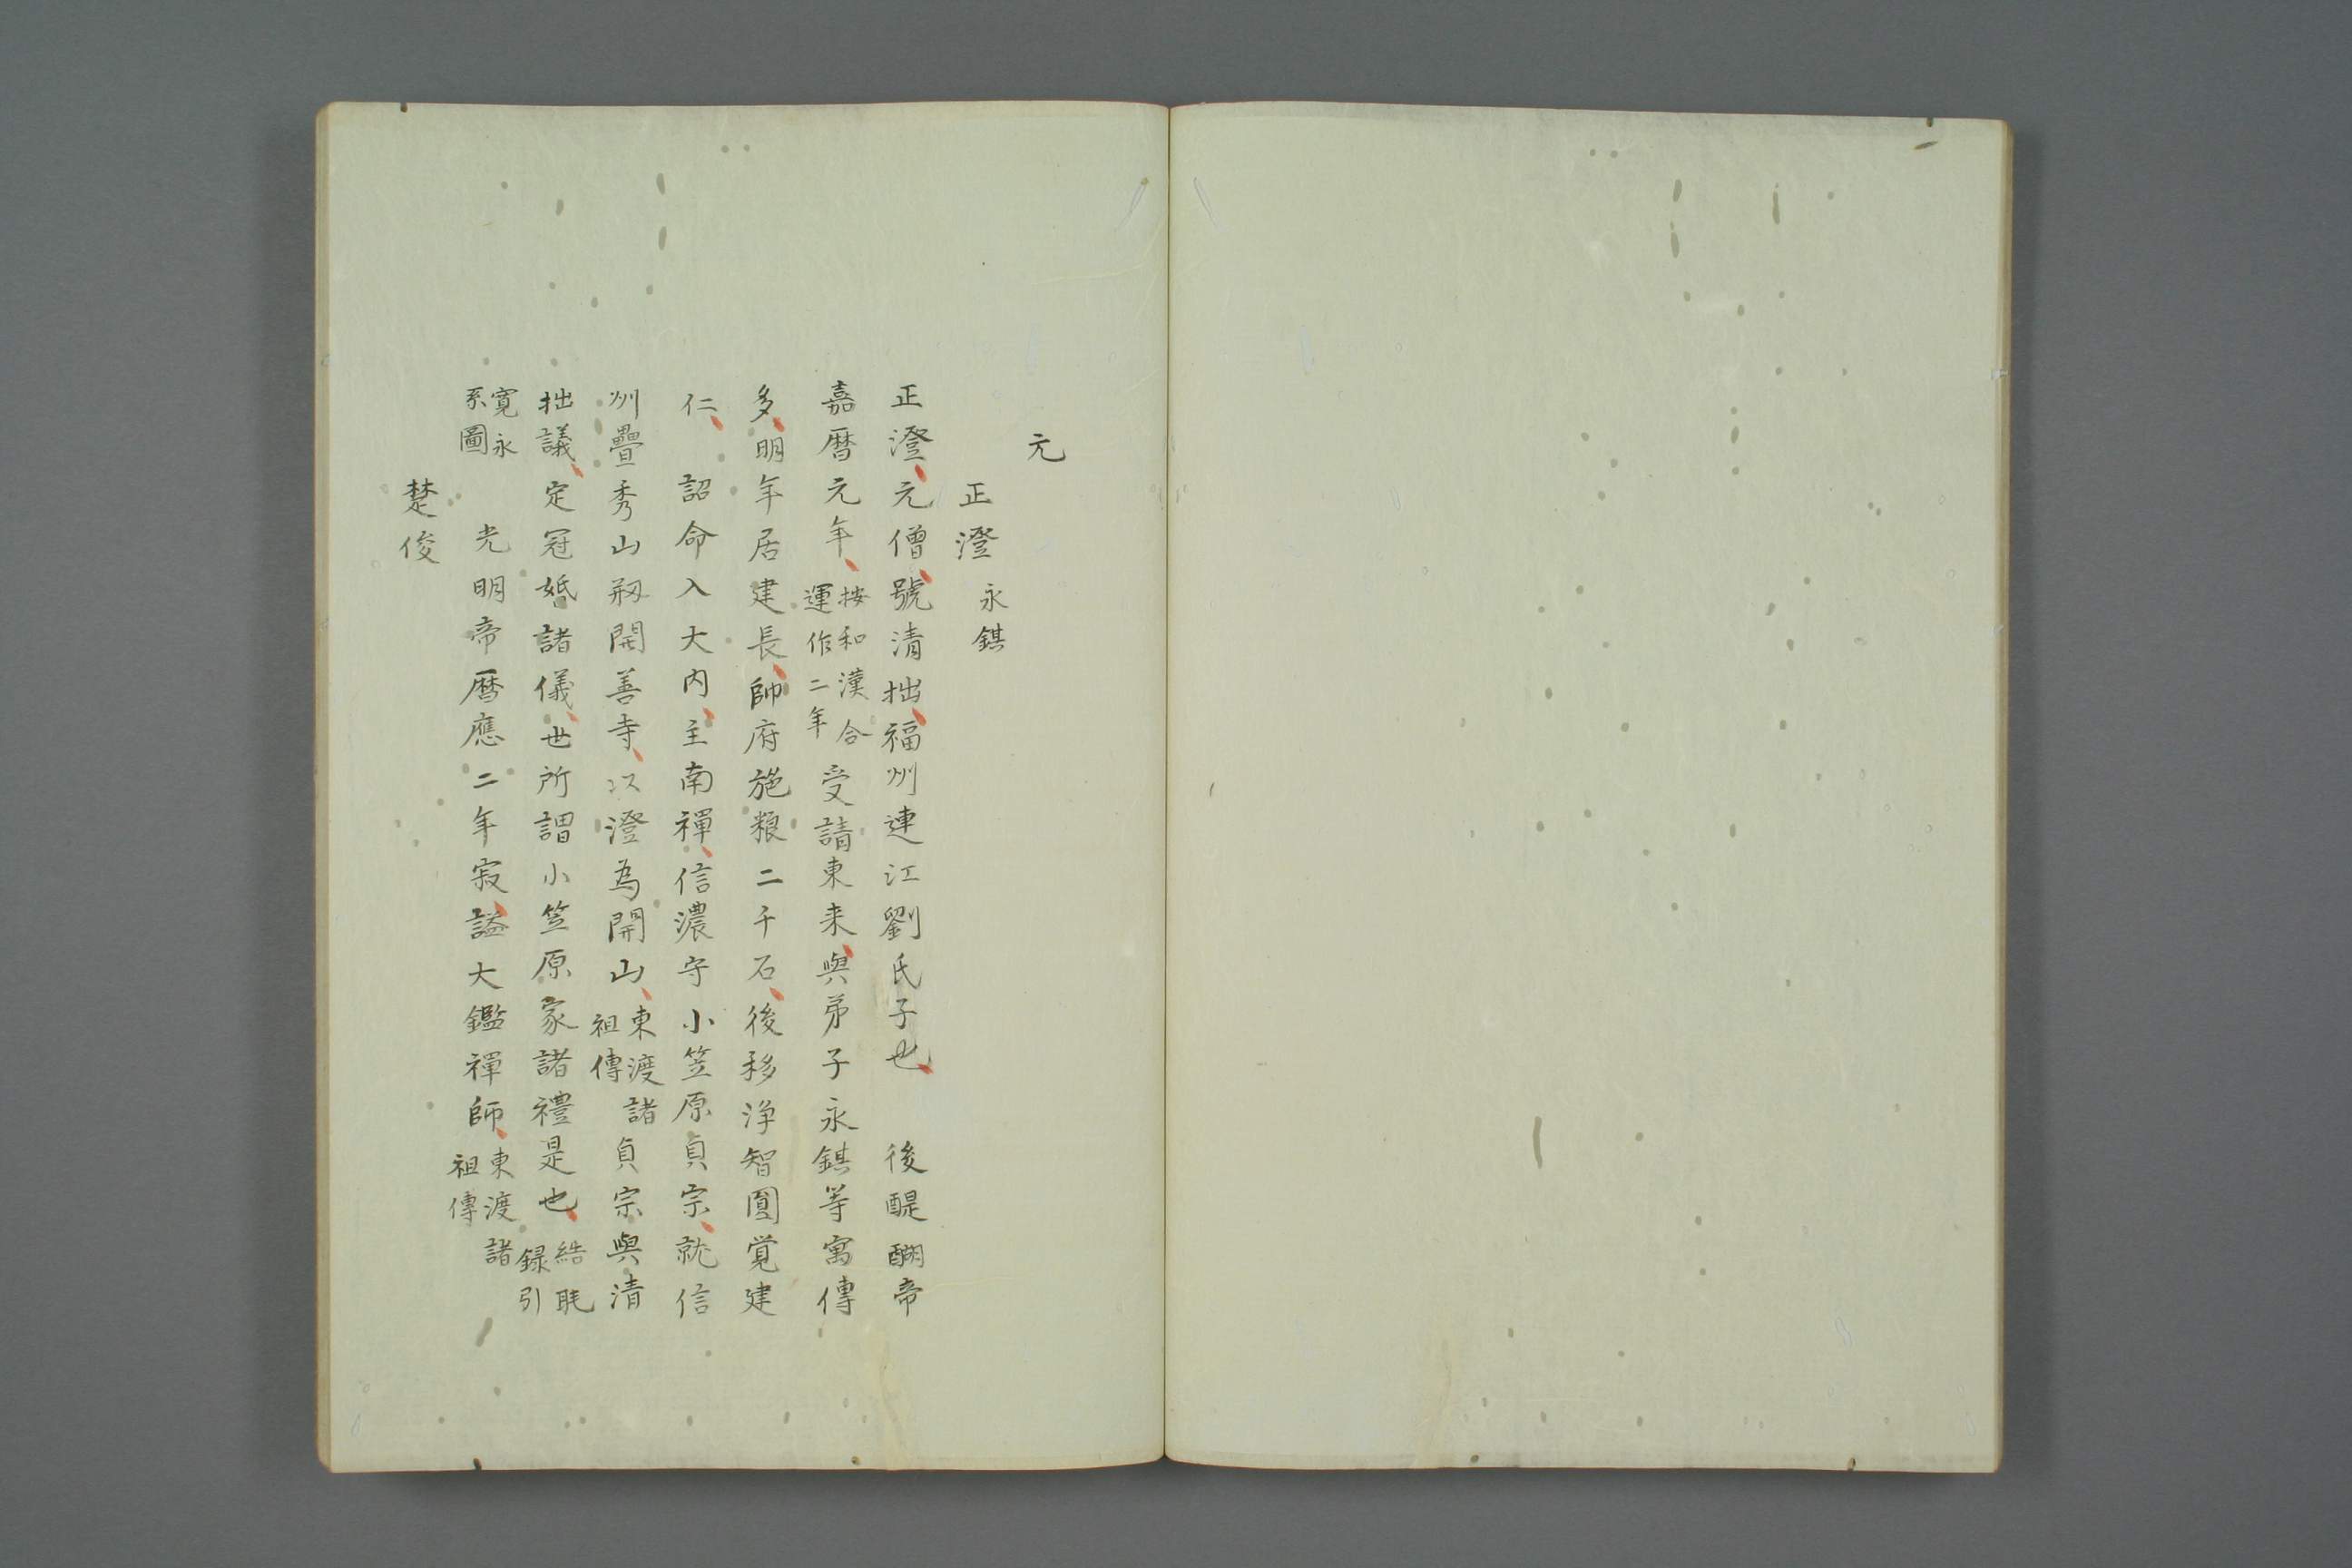 元
正澄 永錤
正澄元僧號清拙福州連江劉氏子也 後醍醐帝
嘉暦元年 按和漢合運作二年 受請東来與弟子永錤等寓傳
多明年居建長帥府施粮二千石後移浄智圓覚建
仁 詔命入大内主南禪信濃守小笠原貞宗就信
州疊秀山剏開善寺以澄為開山 東渡諸祖傳 貞宗與清
拙議定冠婚諸儀世所謂小笠原家諸禮是也 結毦録引
寛永系圖 光明帝暦應二年寂謚大鑑禪師 東渡諸祖傳
楚俊